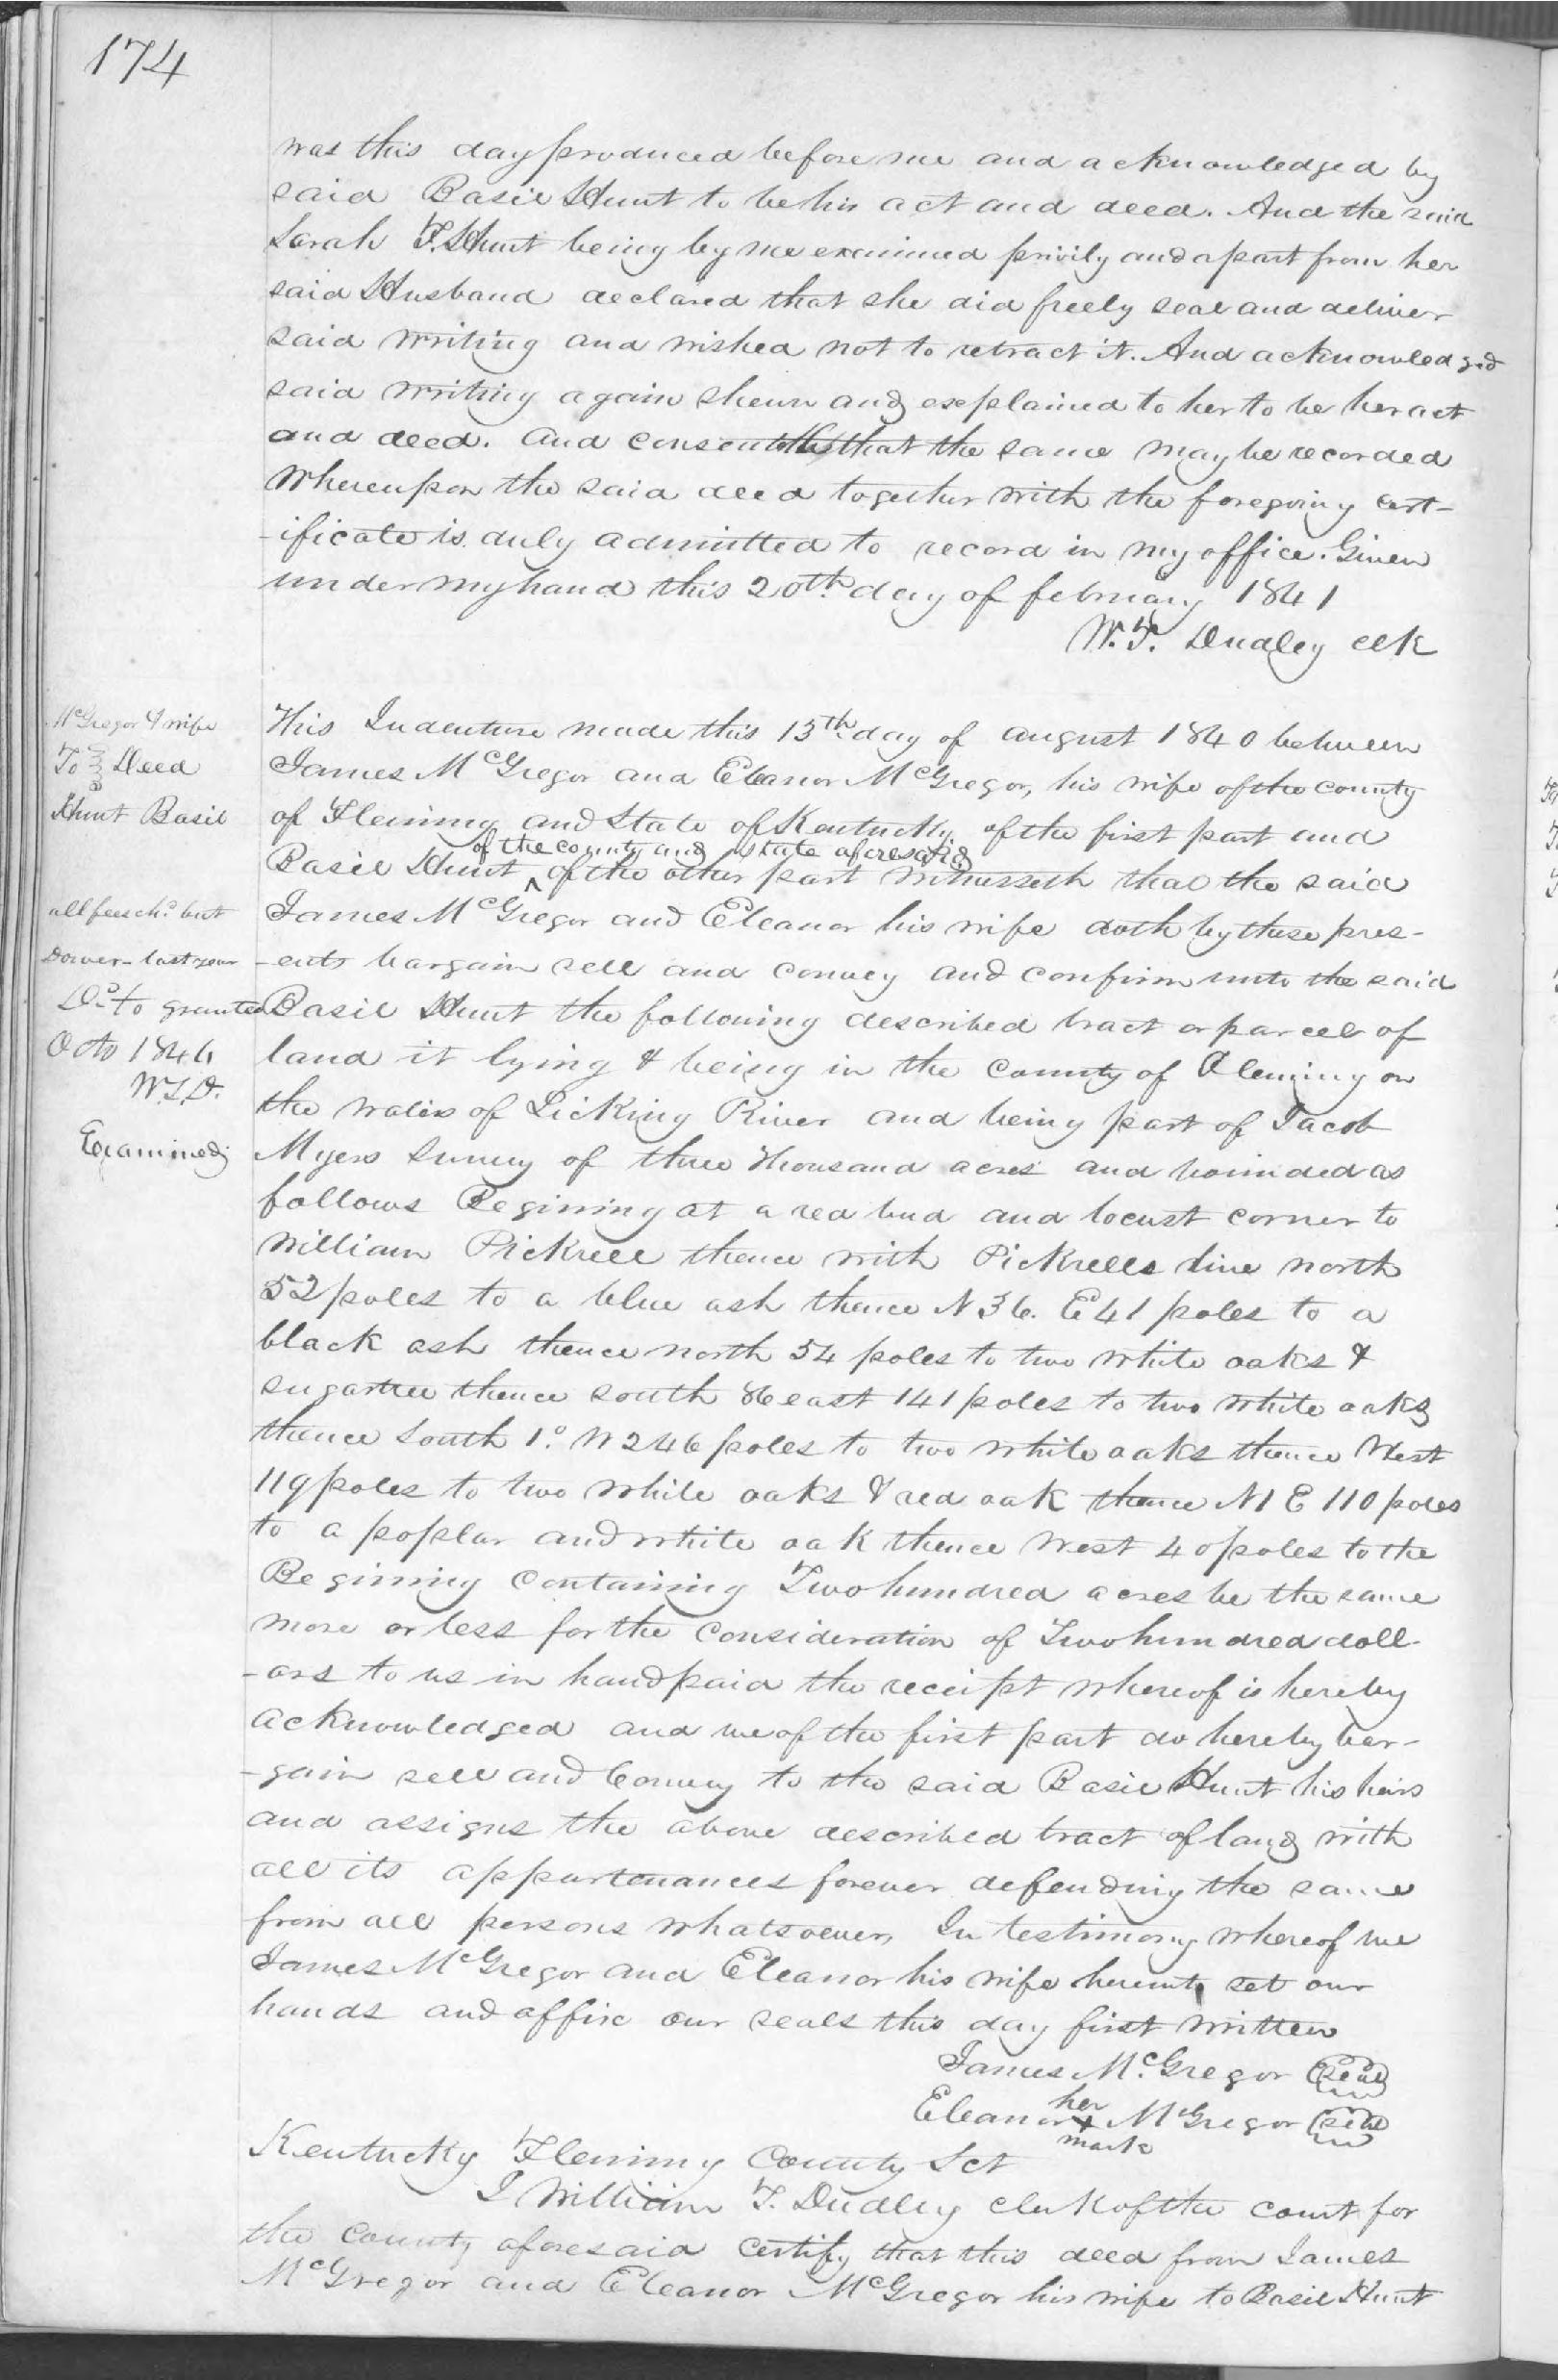 174
was this day produced before me and acknowledged by
said Basil Hunt to be his act and deed. And the said
Sarah F. Hunt being by me examined privily and apart from her
said Husband declared that she did freely seal and deliver
said writing and wished not to retract it. And acknowledged
said writing again shewn and explained to her to be her act
and deed. and consented that the same may be recorded
Whereupon the said deed together with the foregoing cert-
-ificate is duly admitted to record in my office. Given
under my hand this 20th day of february 1841
W. T. Dudley clk
McGregor & wife
To } Deed
Hunt Basil
all fees chd but
Dower - last year
Do to granted
Octo 1846
W.T.D.
Examined
This Indenture made this 13th day of august 1840 between
James McGregor and Eleanor McGregor, his wife of the county
of Fleming and State of Kentucky of the first part and
of the county and state aforesaid
Basil Hunt ^ of the other part Witnesseth that the said
James McGregor and Eleanor his wife doth by these pres-
-ents bargain sell and convey and confirm unto the said
Basil Hunt the following described tract or parcel of
land it lying & being in the County of Fleming on
the waters of Licking River and being part of Jacob
Myers Survey of three thousand acres and bounded as
follows Begining at a red bud and locust corner to
William Pickrell thence with Pickrells line north
52 poles to a blue ash thence N 36. E 41 poles to a
black ash thence north 54 poles to two white oaks &
sugartree thence south 86 east 141 poles to two white oaks
thence South 1.° W 246 poles to two white oaks thence West
119 poles to two white oaks & red oak thence N 1 E 110 poles
to a poplar and white oak thence West 40 poles to the
Begining Containing Two hundred acres be the same
more or less for the consideration of Two hundred doll-
-ars to us in hand paid the receipt whereof is hereby
acknowledged and we of the first part do hereby bar-
-gain sell and Convey to the said Basil Hunt his heirs
and assigns the above described tract of land with
all its appurtenances forever defending the same
from all persons whatsoever, In testimony whereof we
James McGregor and Eleanor his wife hereunto set our
hands and affix our seals this day first written
James McGregor (seal)
her
Eleanor X McGregor (seal)
mark
Kentucky Fleming County Sct
I William T. Dudley clerk of the court for
the County aforesaid certify that this deed from James
McGregor and Eleanor McGregor his wife to Basil Hunt